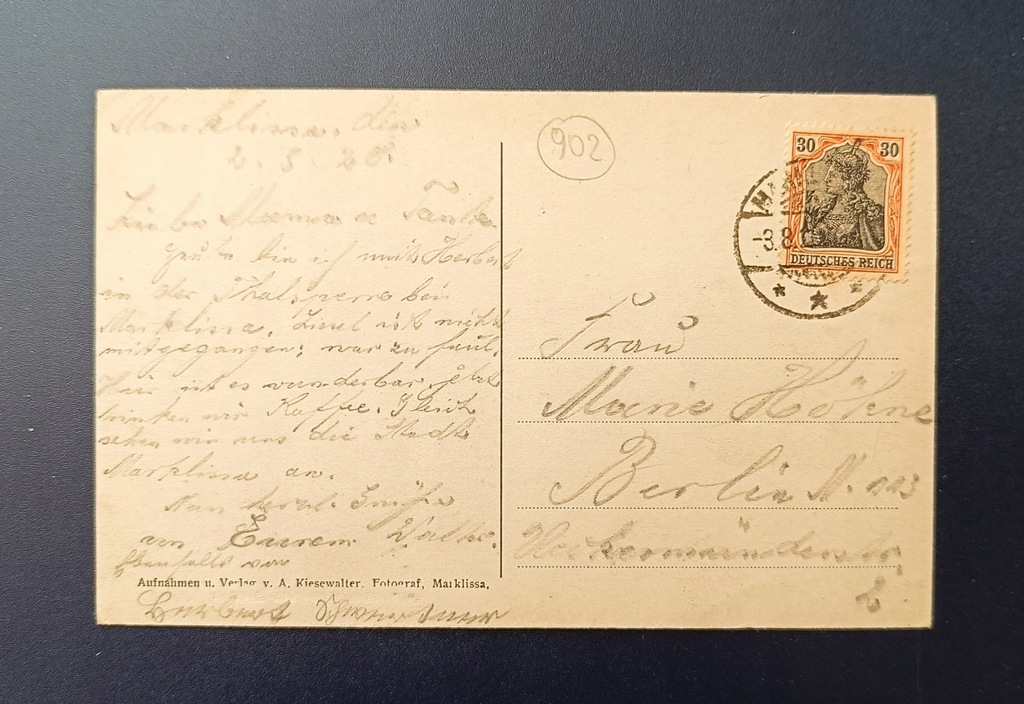 Marklissa, den
2. 8. 20.
Liebe Mama u. Tante.
Heute bin ich mit Herbert
in der Thalsperre bei
Marklissa. Liesel ist nicht
mitgegangen; war zu faul.
Hier ist es wunderbar, jetzt
trinken wir Kaffee. Gleich
sehen wir uns die Stadt
Marklissa an.
Nun herzl. Grüße
von Eurem Walter.
Ebenfalls von
Aufnahmen u. Verlag v. A. Kiesewalter. Fotograf, Marklissa.
Herbert
902
30 30
DEUTSCHES REICH
-3.8
Frau
Marie Höhne
Berlin N. 113
Ueckermünderstr.
2